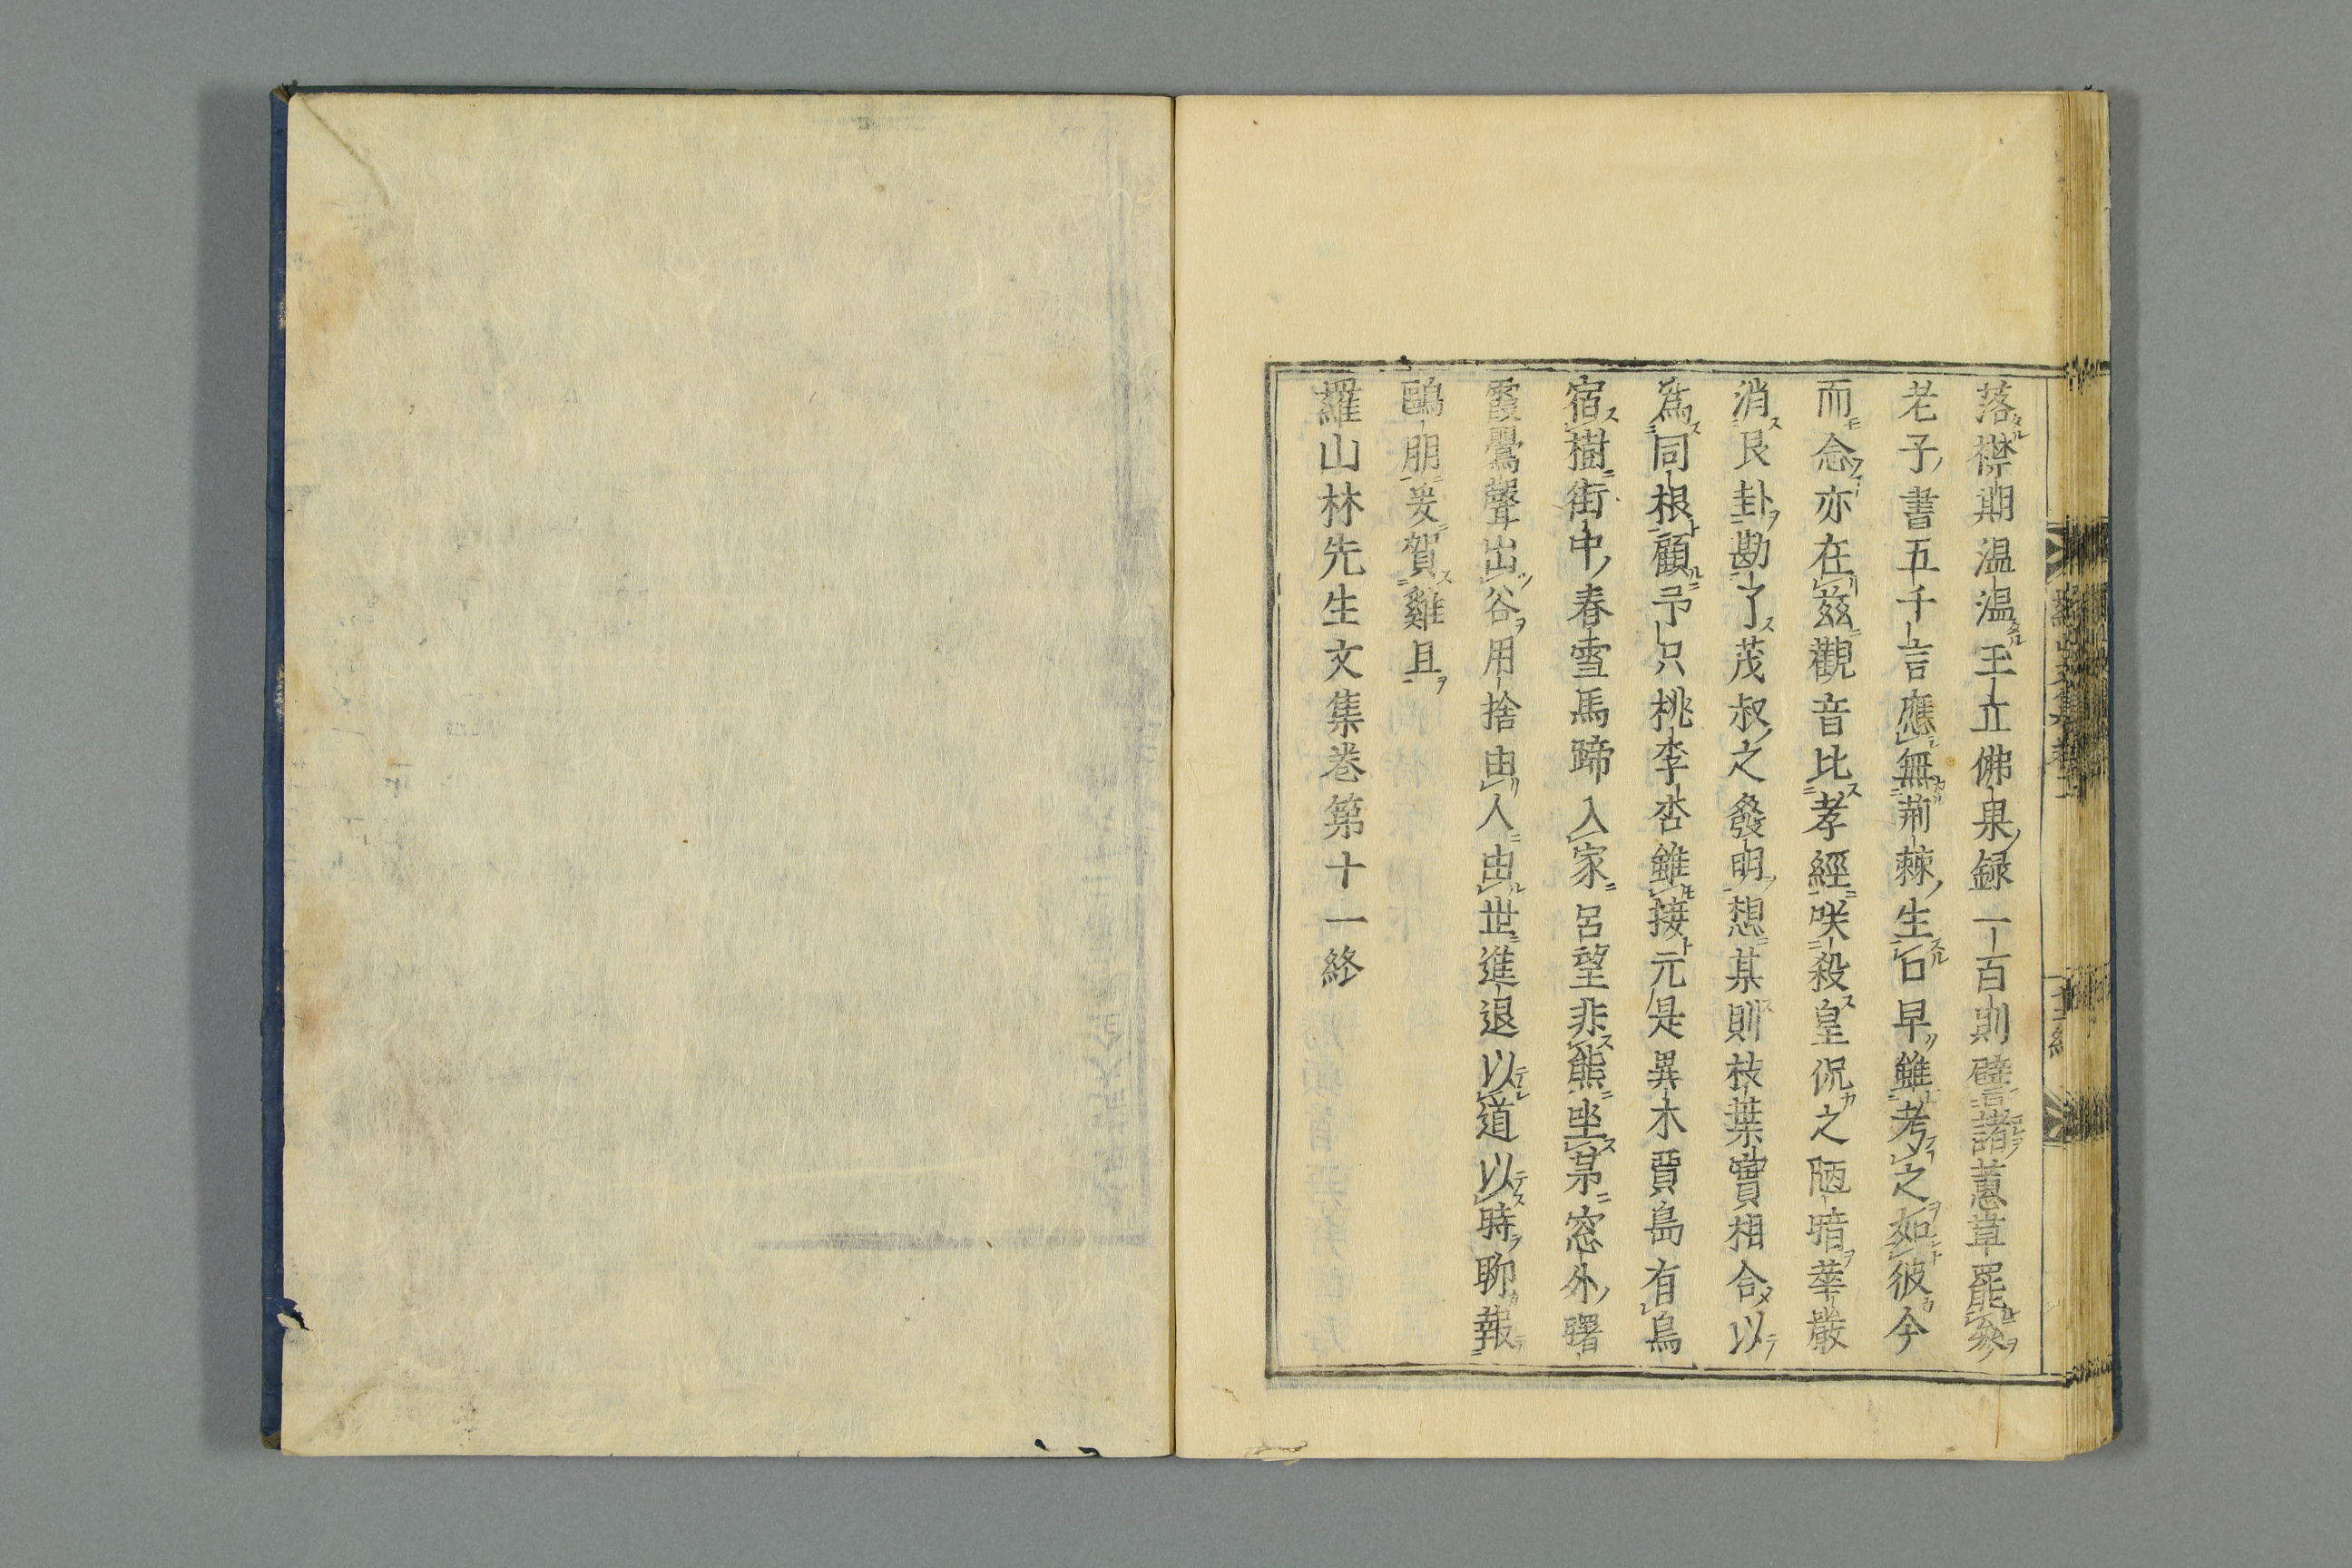 落襟期温温玉立佛果録一百則譬諸蕙草罷參
老子書五千言應無荆棘生口早雖考之如彼今
而念亦在兹觀音比孝經咲殺皇侃之陋暗華嚴
消艮卦勘了茂叔之發明想某則枝葉實相合以
爲同根顧予只桃李杏雖接元是異木賈島有鳥
宿樹街中春雪馬蹄入家呂望非熊坐茅窓外曙
霞鸎聲出谷用捨由人由世進退以道以時聊報
鷗朋爰賀雞且
羅山林先生文集巻第十一終